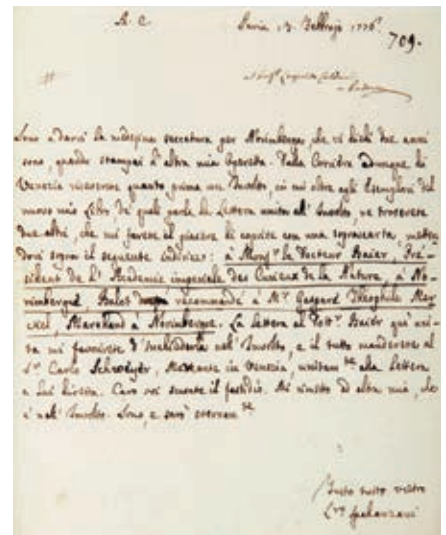 A. C.
Pavia 13. Febbrajo 1776.
709.
Sono a darvi la medesima seccatura per Norimberga, che vi diedi due anni
sono, quando stampai l'altra mia Operetta. Dalla Corriera dunque di
Venezia riceverete quanto prima un Involto, in cui oltre agli Esemplari del
nuovo mio Libro de' quali parla la Lettera unita all' Involto, ne troverete
due altri, che mi farete il piacere di coprire con una sopracarta, mettendovi
sopra il seguente indirizzo: à Mons.r le Docteur Baier, Pré-
sident de l' Academie imperiale des Curieux de la Nature, à No-
rimbergue, Ballot recommandé à M.r Gaspard Théophile Mer-
ckel, Marchand à Norimbergue. La lettera al Dott.r Baier qui uni-
ta mi favorirete d'includerla nell' Involto, e il tutto manderete al
S.r Carlo Schreÿer, Mercante in Venezia, unitam.te alla Lettera
a lui diretta. Caro voi scusate il fastidio. Mi rimetto ad altra mia, che
è nell' Involto. Sono, e sarò eternam.te
Tutto tutto vostro
Spalanzani